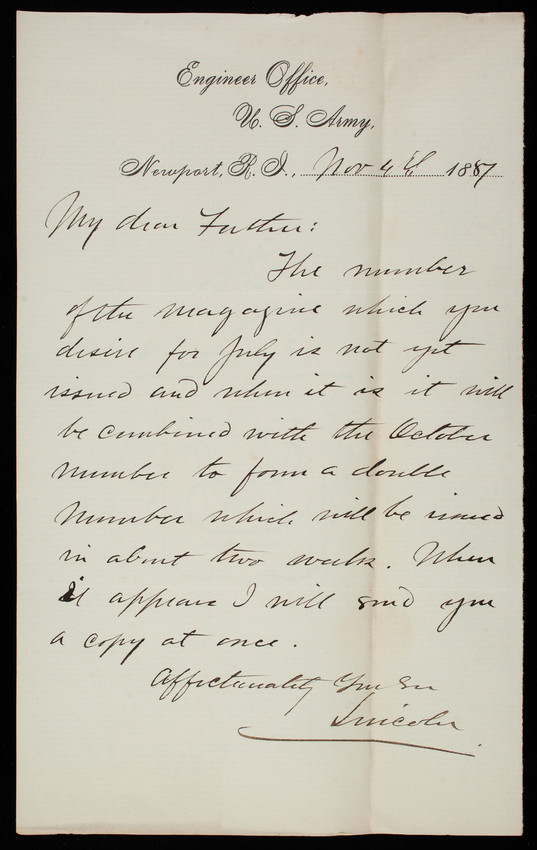 Engineer Office,
U. S. Army,
Newport, R. I., Nov 4th 1887
My dear Father:
The number
of the magazine which you
desire for July is not yet
issued and when it is it will
be combined with the October
number to form a double
number which will be issued
in about two weeks. When
it appears I will send you
a copy at once.
Affectionately Your Son
Lincoln